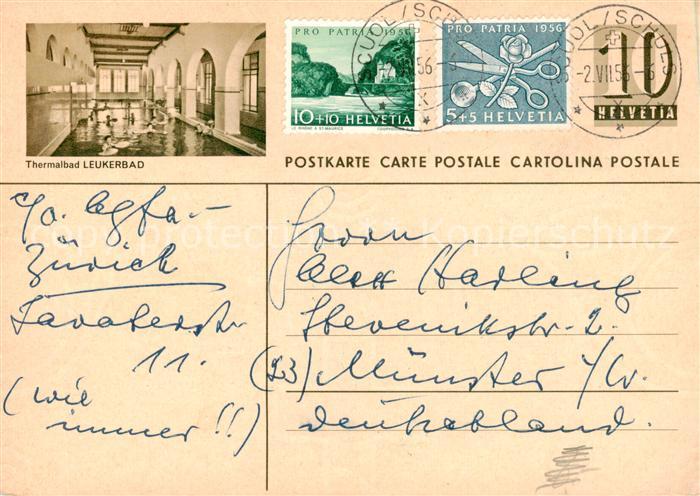 PRO PATRIA 1956
10+10 HELVETIA
LE RHÔNE À ST-MAURICE COURVOISIER S.A.
PRO PATRIA 1956
5+5 HELVETIA
SCUOL/SCHULS
-2.VII.56-6
10
HELVETIA
Thermalbad LEUKERBAD
POSTKARTE CARTE POSTALE CARTOLINA POSTALE
c/o. Agfa.-
Zürich
Lavaterstr.
11.
(wie
immer!!)
Herrn
Harling
2.
(23) Münster i/W.
Deutschland.
copyright protection Kopierschutz